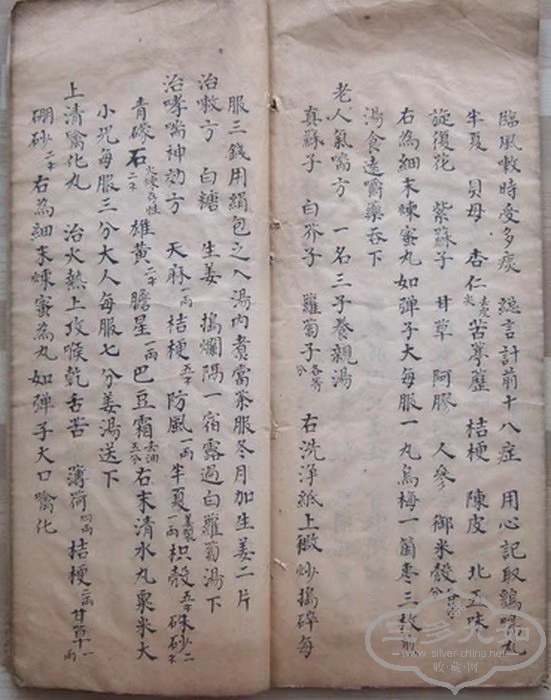 臨風嗽時受多痰 總言計前十八症 用心記取鷄鳴丸
半夏 貝母 杏仁去皮尖 苦葶藶 桔梗 陳皮 北五味
旋復花 紫蘇子 甘草 阿膠 人參 御米殼
右為細末煉蜜丸如弹子大每服一丸烏梅一箇枣三枚
湯食遠嚼藥吞下
老人氣喘方 一名三子養親湯
真蘇子 白芥子 蘿蔔子各等分 右洗淨紙上微炒搗碎每
服三錢用絹包之入湯内煑當茶服冬月加生姜二片
治嗽方 白糖 生姜 搗爛隔一宿露過白蘿蔔湯下
治哮喘神効方 天麻一両 桔梗五个 防風一両 半夏一両 枳殼五个 硃砂二个
青礞石二个 雄黄二个 膽星一両 巴豆霜去油五分 右末清水丸粟米大
小児每服三分大人每服七分姜湯送下
上清噙化丸 治火熱上攻喉乾舌苦 薄荷四両 桔梗二両 甘草一両
硼砂二个 右為細末煉蜜為丸如弹子大口噙化
www.silver-china.net
收·藏·网